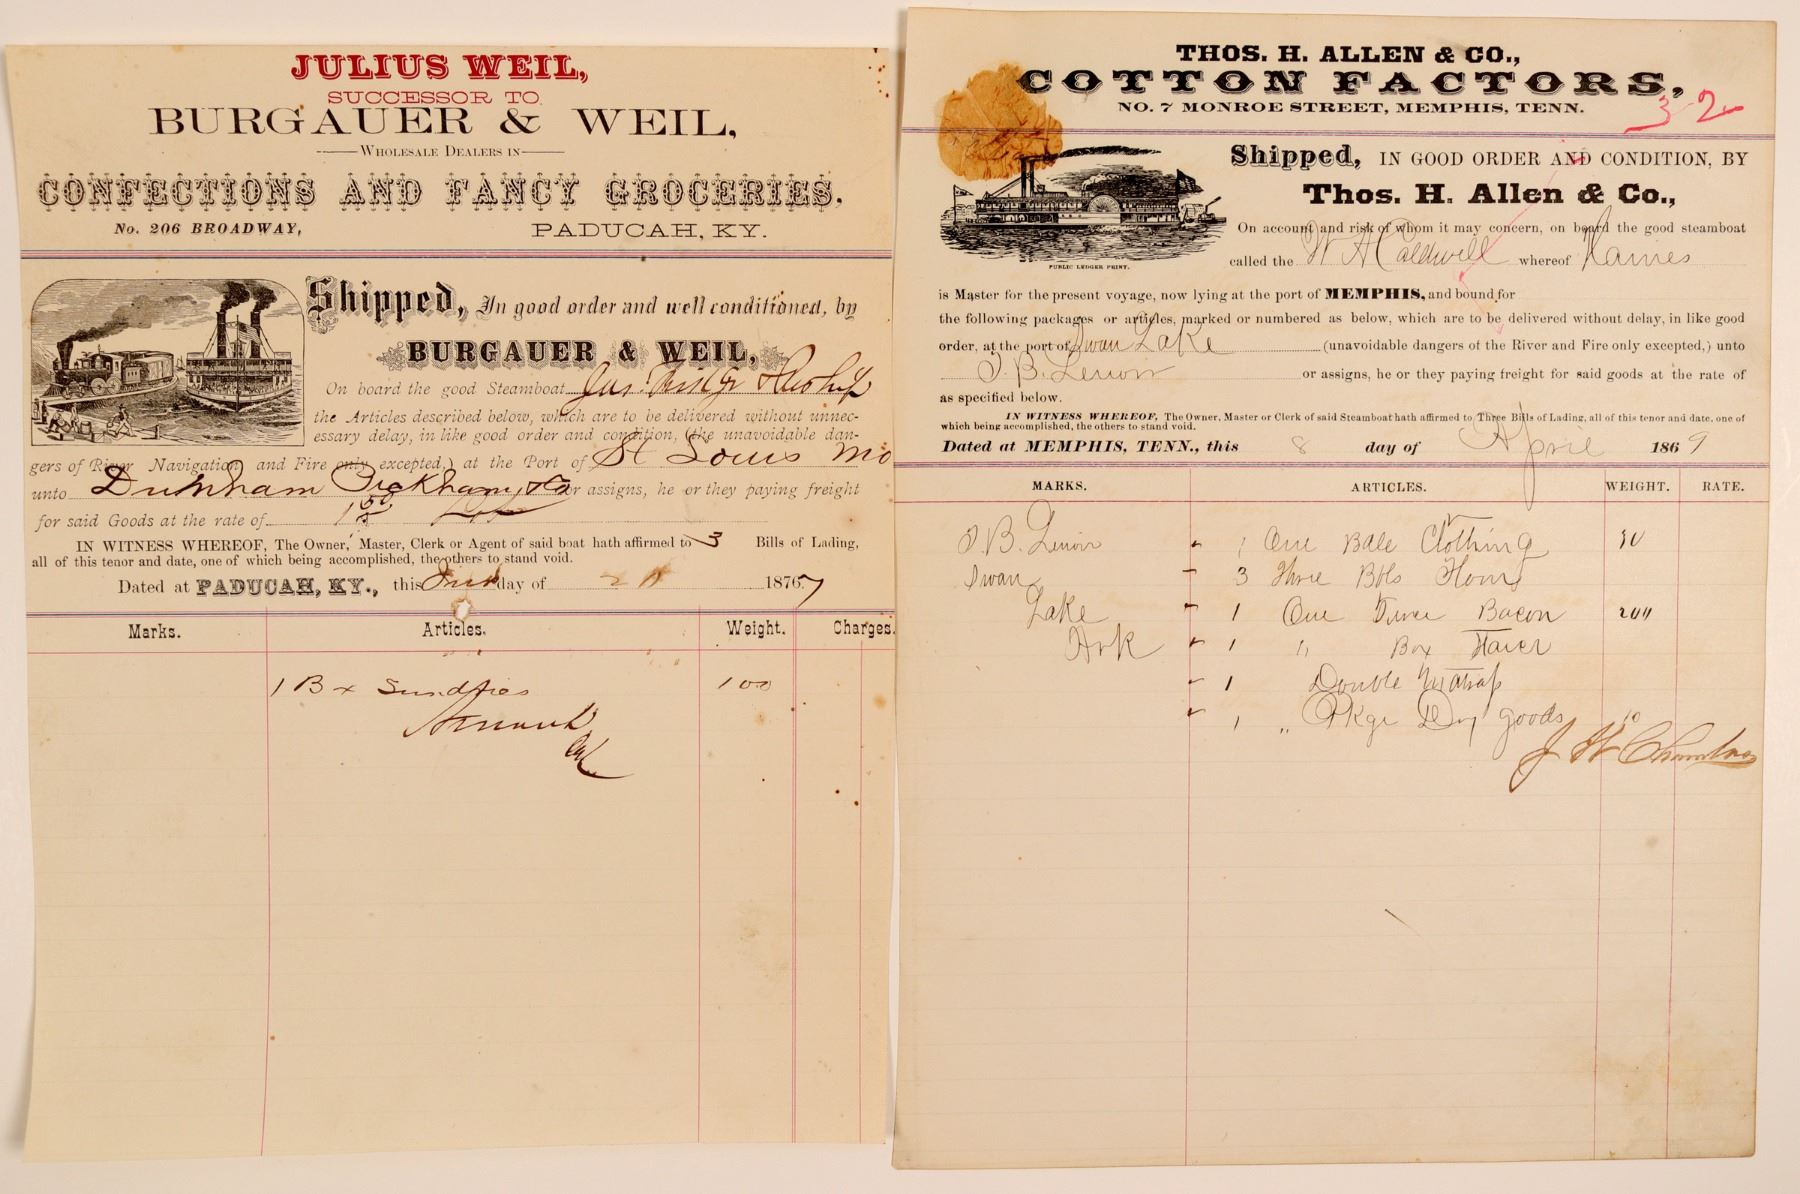 JULIUS WEIL,
SUCCESSOR TO
BURGAUER & WEIL,
WHOLESALE DEALERS IN
CONFECTIONS AND FANCY GROCERIES.
No. 206 BROADWAY, PADUCAH, KY.
Shipped, In good order and well conditioned, by
BURGAUER & WEIL,
On board the good Steamboat
the Articles described below, which are to be delivered without unnec-
essary delay, in like good order and condition, (the unavoidable dan-
gers of River Navigation and Fire only excepted,) at the Port of St Louis Mo
unto Dunham or assigns, he or they paying freight
for said Goods at the rate of
IN WITNESS WHEREOF, The Owner, Master, Clerk or Agent of said boat hath affirmed to 3 Bills of Lading,
all of this tenor and date, one of which being accomplished, the others to stand void.
Dated at PADUCAH, KY., this day of 1877
Marks. Articles. Weight. Charges.
1 Bx Sundries 100
THOS. H. ALLEN & CO.,
COTTON FACTORS,
NO. 7 MONROE STREET, MEMPHIS, TENN.
32
Shipped, IN GOOD ORDER AND CONDITION, BY
Thos. H. Allen & Co.,
On account and risk of whom it may concern, on board the good steamboat
called the W A Caldwell whereof Haines
PUBLIC LEDGER PRINT.
is Master for the present voyage, now lying at the port of MEMPHIS, and bound for
the following packages or articles, marked or numbered as below, which are to be delivered without delay, in like good
order, at the port of Swan Lake (unavoidable dangers of the River and Fire only excepted,) unto
J. B. Lenoir or assigns, he or they paying freight for said goods at the rate of
as specified below.
IN WITNESS WHEREOF, The Owner, Master or Clerk of said Steamboat hath affirmed to Three Bills of Lading, all of this tenor and date, one of
which being accomplished, the others to stand void.
Dated at MEMPHIS, TENN., this 8 day of April 1869
MARKS. ARTICLES. WEIGHT. RATE.
J. B. Lenoir 1 One Bale Clothing
Swan 3 Three Bbls Flour
Lake 1 One Bacon 200
Ark 1 " Box
1 Double
1 " Pkge Dry goods